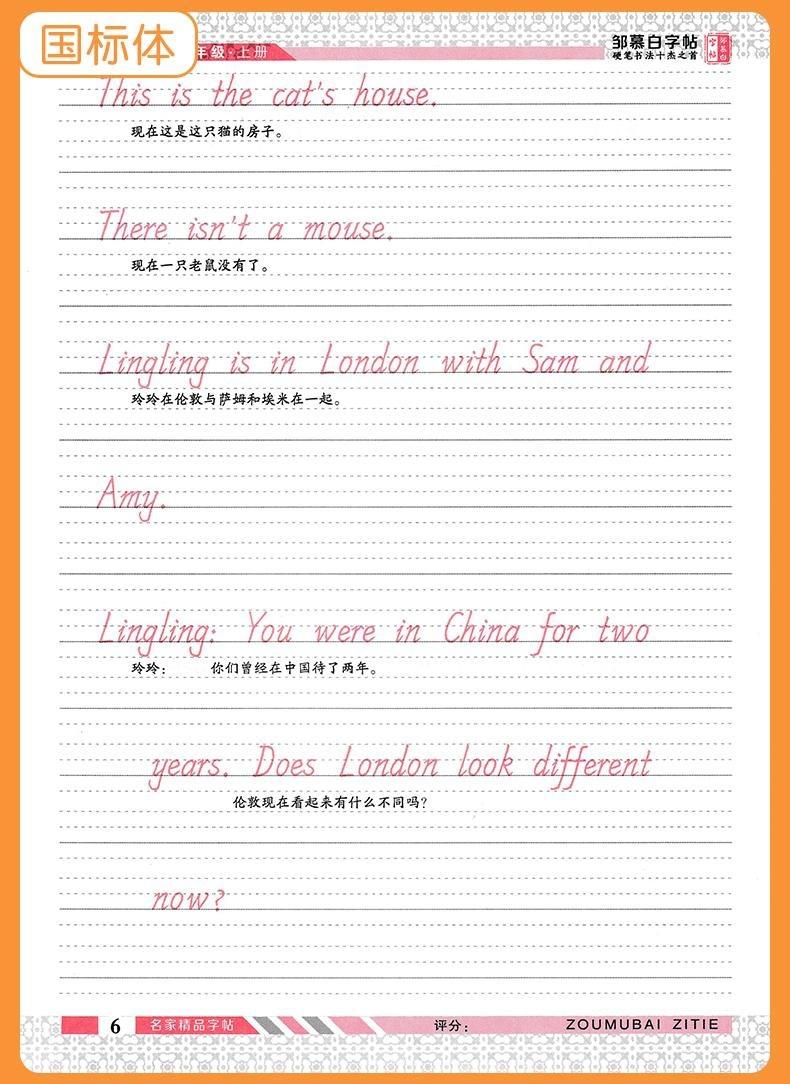 国标体
年级·上册
邹慕白字帖
硬笔书法十杰之首
This is the cat's house.
现在这是这只猫的房子。
There isn't a mouse.
现在一只老鼠没有了。
Lingling is in London with Sam and
玲玲在伦敦与萨姆和埃米在一起。
Amy.
Lingling: You were in China for two
玲玲： 你们曾经在中国待了两年。
years. Does London look different
伦敦现在看起来有什么不同吗？
now?
6 名家精品字帖 评分： ZOUMUBAI ZITIE